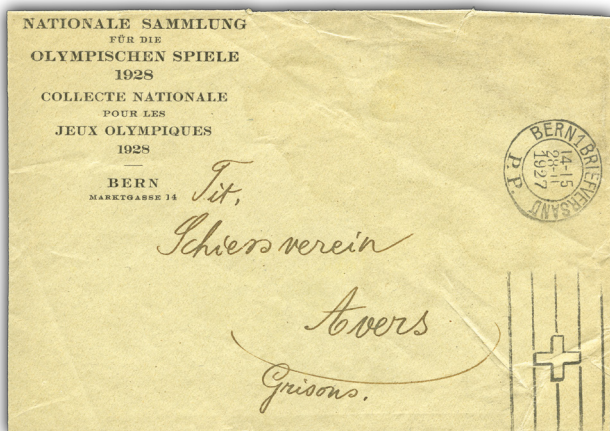 NATIONALE SAMMLUNG
FÜR DIE
OLYMPISCHEN SPIELE
1928
COLLECTE NATIONALE
POUR LES
JEUX OLYMPIQUES
1928
BERN
MARKTGASSE 14
BERN 1 BRIEFVERSAND
14-15
28·II
1927
P.P.
Tit.
Schiessverein
Avers
Grisons.